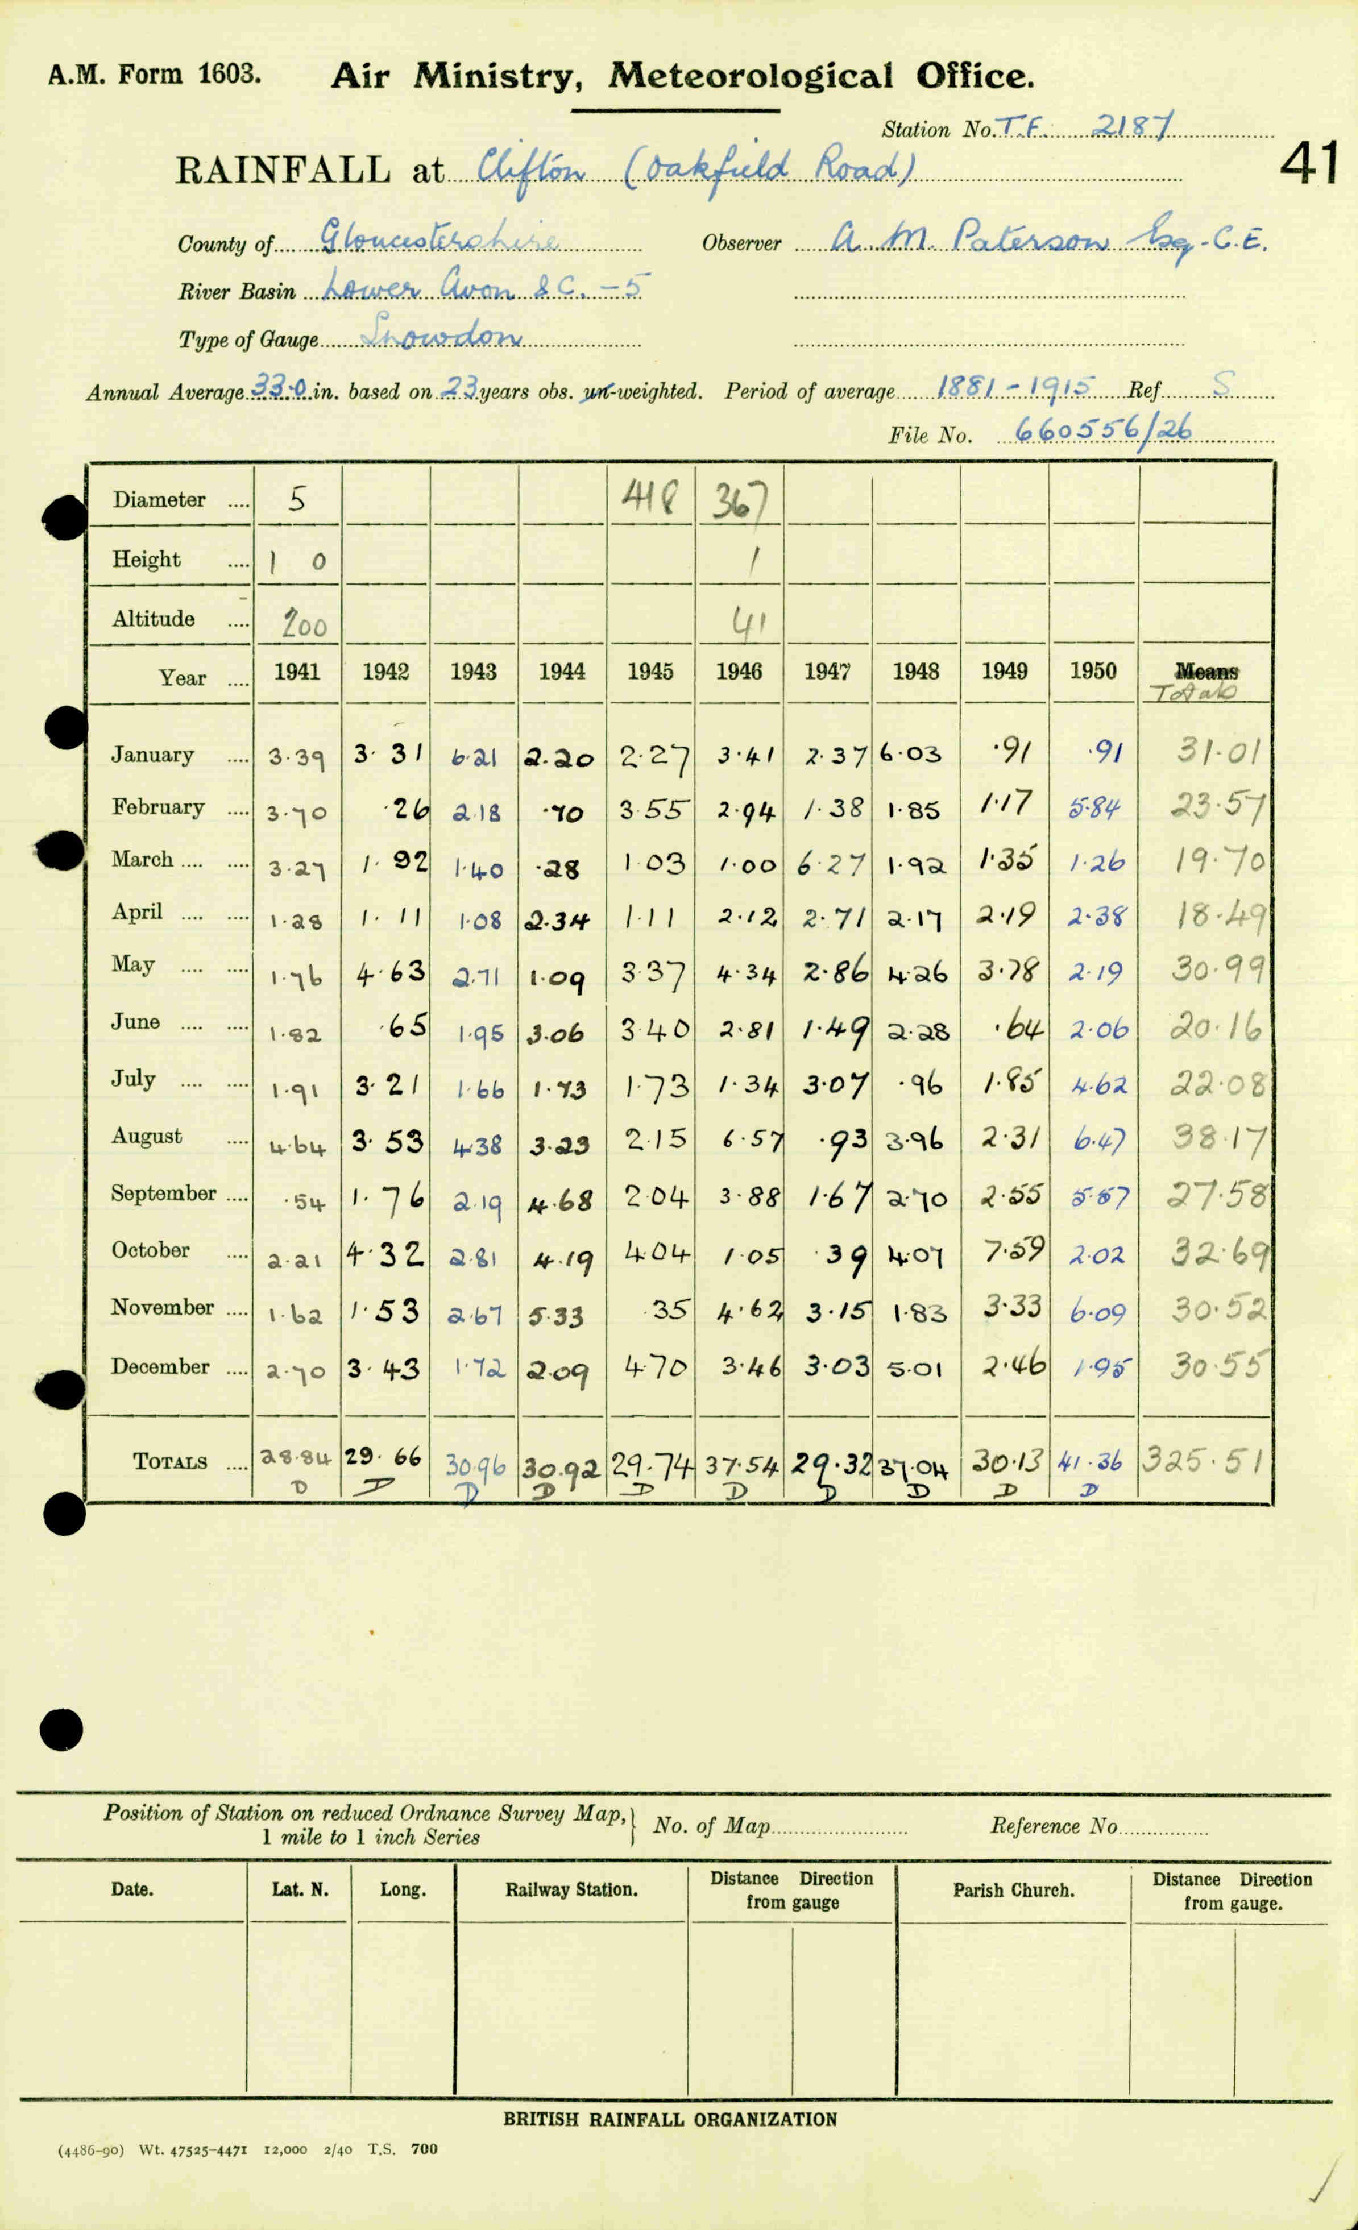 A.M. Form 1603. Air Ministry, Meteorological Office.
Station No. T.F. 2187
41
RAINFALL at Clifton (Oakfield Road)
County of Gloucestershire Observer A. M. Paterson Esq. C.E.
River Basin Lower Avon &C. - 5
Type of Gauge Snowdon
Annual Average 33.0 in. based on 23 years obs. un-weighted. Period of average 1881-1915 Ref S
File No. 660556/26
Diameter .... 5 418 367
Height .... 1 0 1
Altitude .... 200 41
Year .... 1941 1942 1943 1944 1945 1946 1947 1948 1949 1950 Means
Totals
January .... 3.39 3.31 6.21 2.20 2.27 3.41 2.37 6.03 .91 .91 31.01
February .... 3.70 .26 2.18 .70 3.55 2.94 1.38 1.85 1.17 5.84 23.57
March .... .... 3.27 1.92 1.40 .28 1.03 1.00 6.27 1.92 1.35 1.26 19.70
April .... .... 1.28 1.11 1.08 2.34 1.11 2.12 2.71 2.17 2.19 2.38 18.49
May .... .... 1.76 4.63 2.71 1.09 3.37 4.34 2.86 4.26 3.78 2.19 30.99
June .... .... 1.82 .65 1.95 3.06 3.40 2.81 1.49 2.28 .64 2.06 20.16
July .... .... 1.91 3.21 1.66 1.73 1.73 1.34 3.07 .96 1.85 4.62 22.08
August .... 4.64 3.53 4.38 3.23 2.15 6.57 .93 3.96 2.31 6.47 38.17
September .... .54 1.76 2.19 4.68 2.04 3.88 1.67 2.70 2.55 5.57 27.58
October .... 2.21 4.32 2.81 4.19 4.04 1.05 .39 4.07 7.59 2.02 32.69
November .... 1.62 1.53 2.67 5.33 .35 4.62 3.15 1.83 3.33 6.09 30.52
December .... 2.70 3.43 1.72 2.09 4.70 3.46 3.03 5.01 2.46 1.95 30.55
TOTALS .... 28.84 29.66 30.96 30.92 29.74 37.54 29.32 37.04 30.13 41.36 325.51
D D D D D D D D D D
Position of Station on reduced Ordnance Survey Map, 1 mile to 1 inch Series } No. of Map Reference No
Date. Lat. N. Long. Railway Station. Distance from gauge Direction Parish Church. Distance from gauge. Direction
BRITISH RAINFALL ORGANIZATION
(4486-90) Wt. 47525-4471 12,000 2/40 T.S. 700